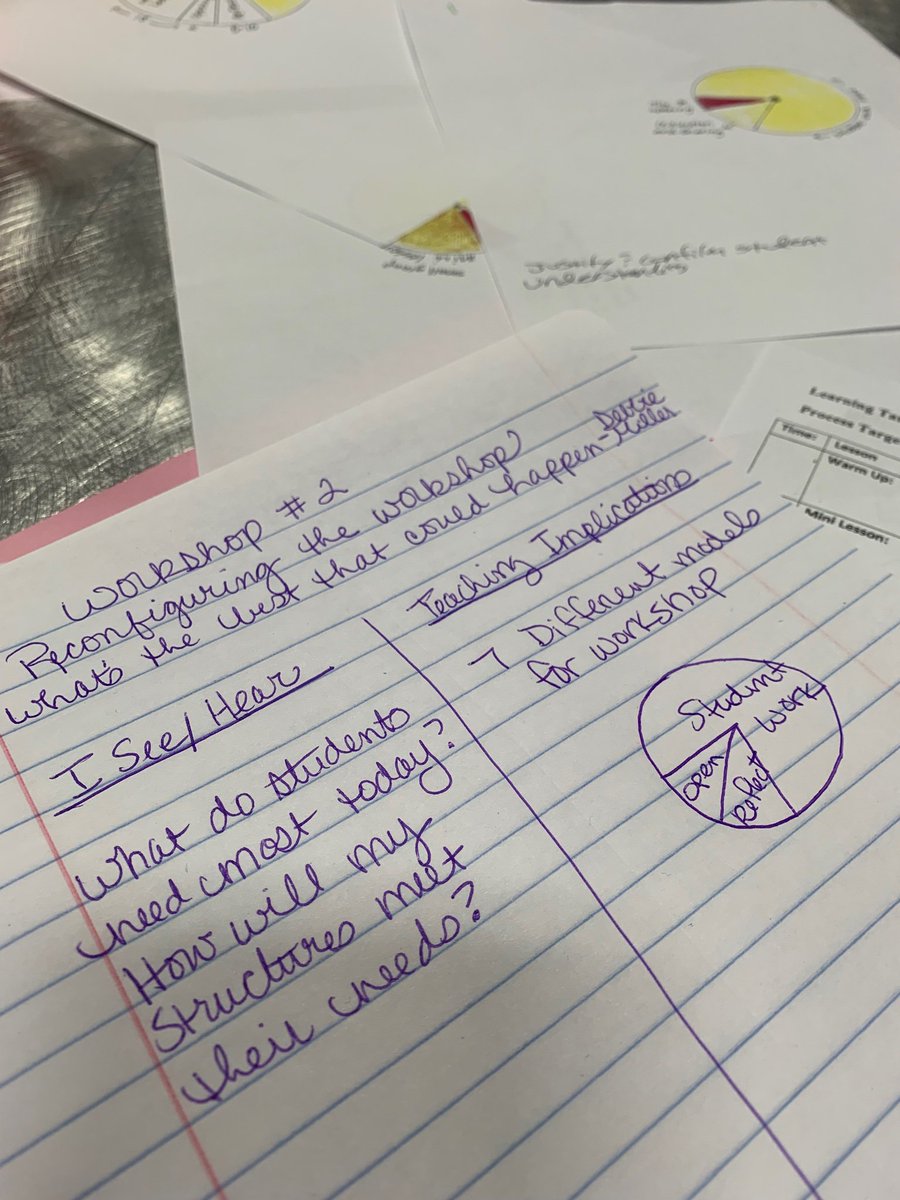 Justify? confirm student
understanding
Learning Ta
Process Targe
Time:
Lesson
Warm Up:
Mini Lesson:
Workshop #2
Reconfiguring the workshop
what's the best that could happen-Debbie
Miller
I See/Hear
What do students
need most today?
How will my
structures meet
their needs?
Teaching Implications
7 Different models
for workshop
Student
Work
Open
Reflect